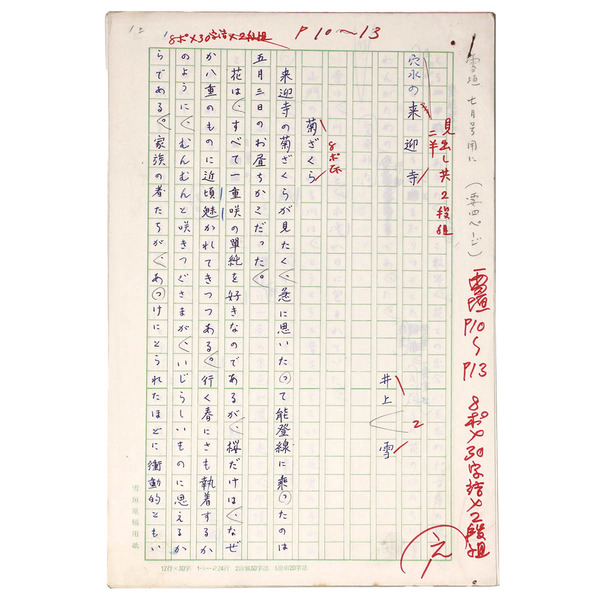 雪垣 七月号用に
(要四ページ)
雪垣 P10〜P13 8ポ×30字詰×2段組
見出し共2段組
穴水の来迎寺
二半
井上 雪
2
菊ざくら
8ポ
来迎寺の菊ざくらが見たく、急に思いたって能登線に乗ったのは
五月三日のお昼ちかくだった。
花は、すべて一重咲の単純を好きなのであるが、桜だけは、なぜ
か八重のものに近頃魅かれてきつつある。行く春にさも執着するか
のように、むんむんと咲きつぐさまが、いじらしいものに思えるか
らである。家族の者たちが、あっけにとられたほどに衝動的ともい
8ポ×30字詰×2段組
P10〜13
雪垣原稿用紙